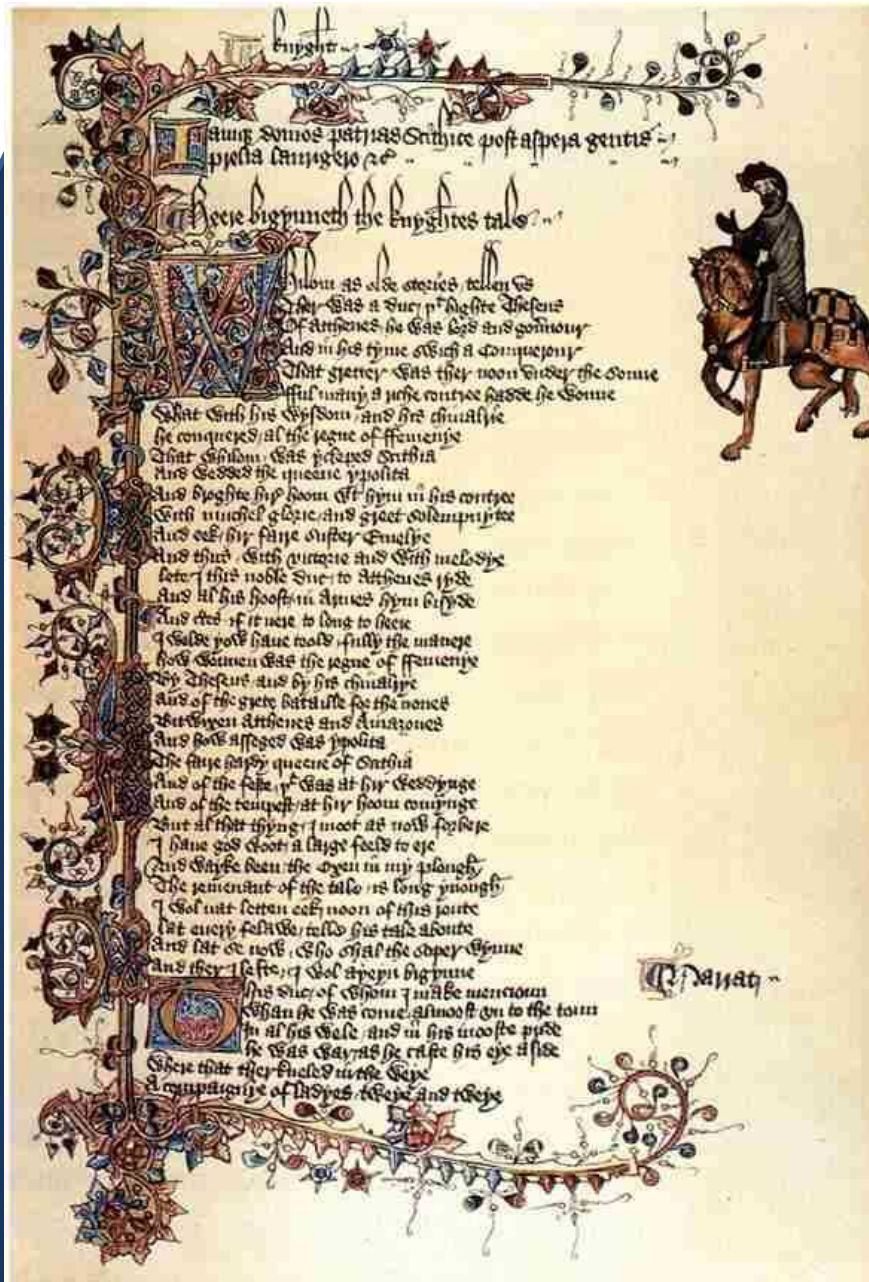 knyght
Iamq; domos patrias Scithice post aspera gentis
prelia laurigero &c
Heere bigynneth the knyghtes tale
Whilom as olde stories tellen vs
Ther was a duc þt highte Theseus
Of Atthenes he was lord and gouernour
And in his tyme swich a Conquerour
That gretter was ther noon vnder the sonne
fful many a riche contree hadde he wonne
What with his wysdom and his chiualrie
he conquered al the regne of ffemenye
That whilom was ycleped Scithia
And wedded the queene ypolita
And broghte hir hoom wt hym in his contree
With muchel glorie and greet solempnytee
And eek hir faire suster Emelye
And thus with victorie and with melodye
lete I this noble duc to Atthenes ryde
And al his hoost in Armes hym bisyde
And certes if it nere to long to heere
I wolde yow haue toold fully the manere
how wonnen was the regne of ffemenye
By Theseus and by his chiualrye
And of the grete bataille for the nones
Bitwixen Atthenes and Amazones
And how asseged was ypolita
The faire hardy queene of Scithia
And of the feste þt was at hir weddynge
And of the tempest at hir hoom comynge
But al that thyng I moot as now forbere
I haue god woot a large feeld to ere
And wayke been the Oxen in my plough
The remenant of the tale is long ynough
I wol nat letten eek noon of this route
lat euery felawe telle his tale aboute
And lat se now who shal the soper wynne
And ther I lefte I wol ayeyn bigynne
This duc of whom I make mencioun
Whan he was come almoost vn to the toun
In al his wele and in his mooste pride
he was war as he caste his eye aside
Where that ther kneled in the weye
A compaignye of ladyes tweye and tweye
Narrat